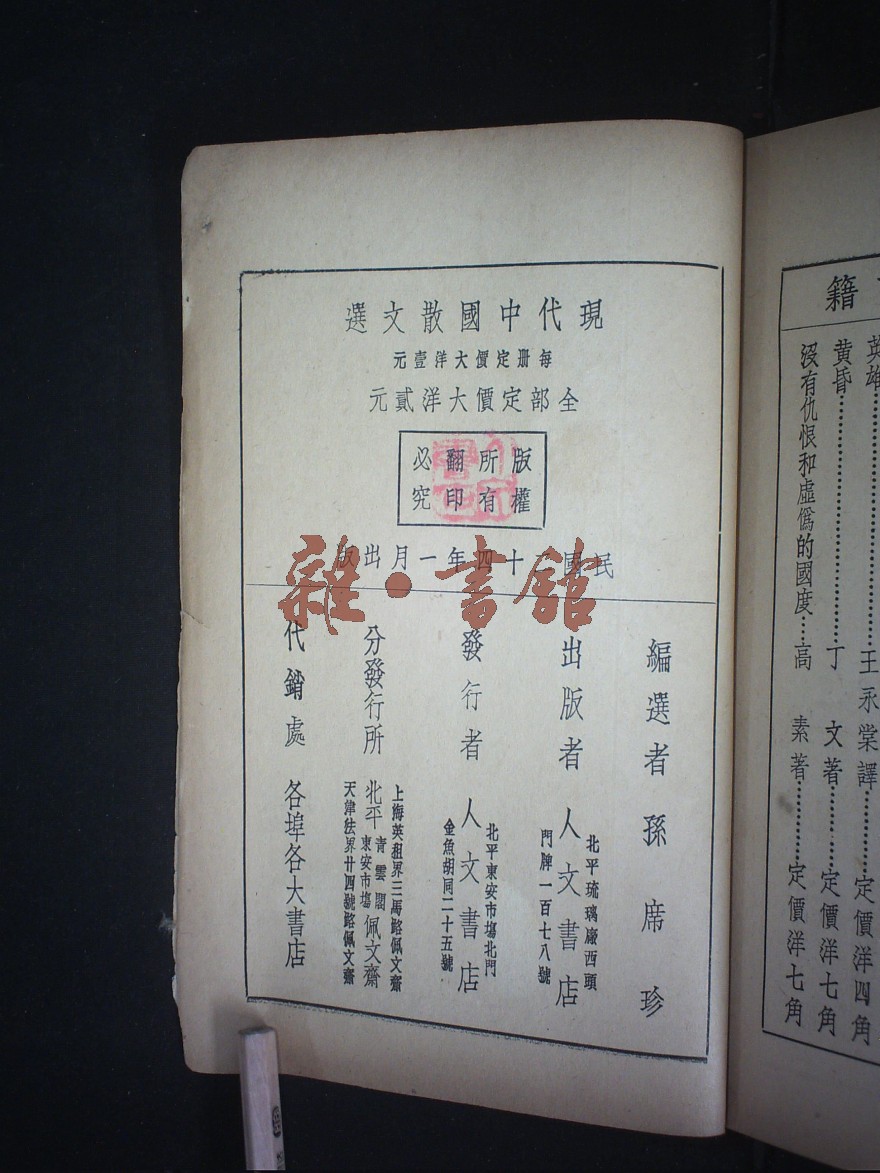 現代中國散文選
每冊定價大洋壹元
全部定價大洋貳元
版權所有
翻印必究
民國二十四年一月出版
雜·書館
編選者 孫席珍
出版者 人文書店
北平琉璃廠西頭
門牌一百七八號
發行者 人文書店
北平東安市場北門
金魚胡同二十五號
分發行所
上海英租界三馬路佩文齋
北平青雲閣東安市場佩文齋
天津法界廿四號路佩文齋
代銷處 各埠各大書店
籍
英雄……王永棠譯……定價洋四角
黃昏……丁文著……定價洋七角
沒有仇恨和虛偽的國度……高素著……定價洋七角